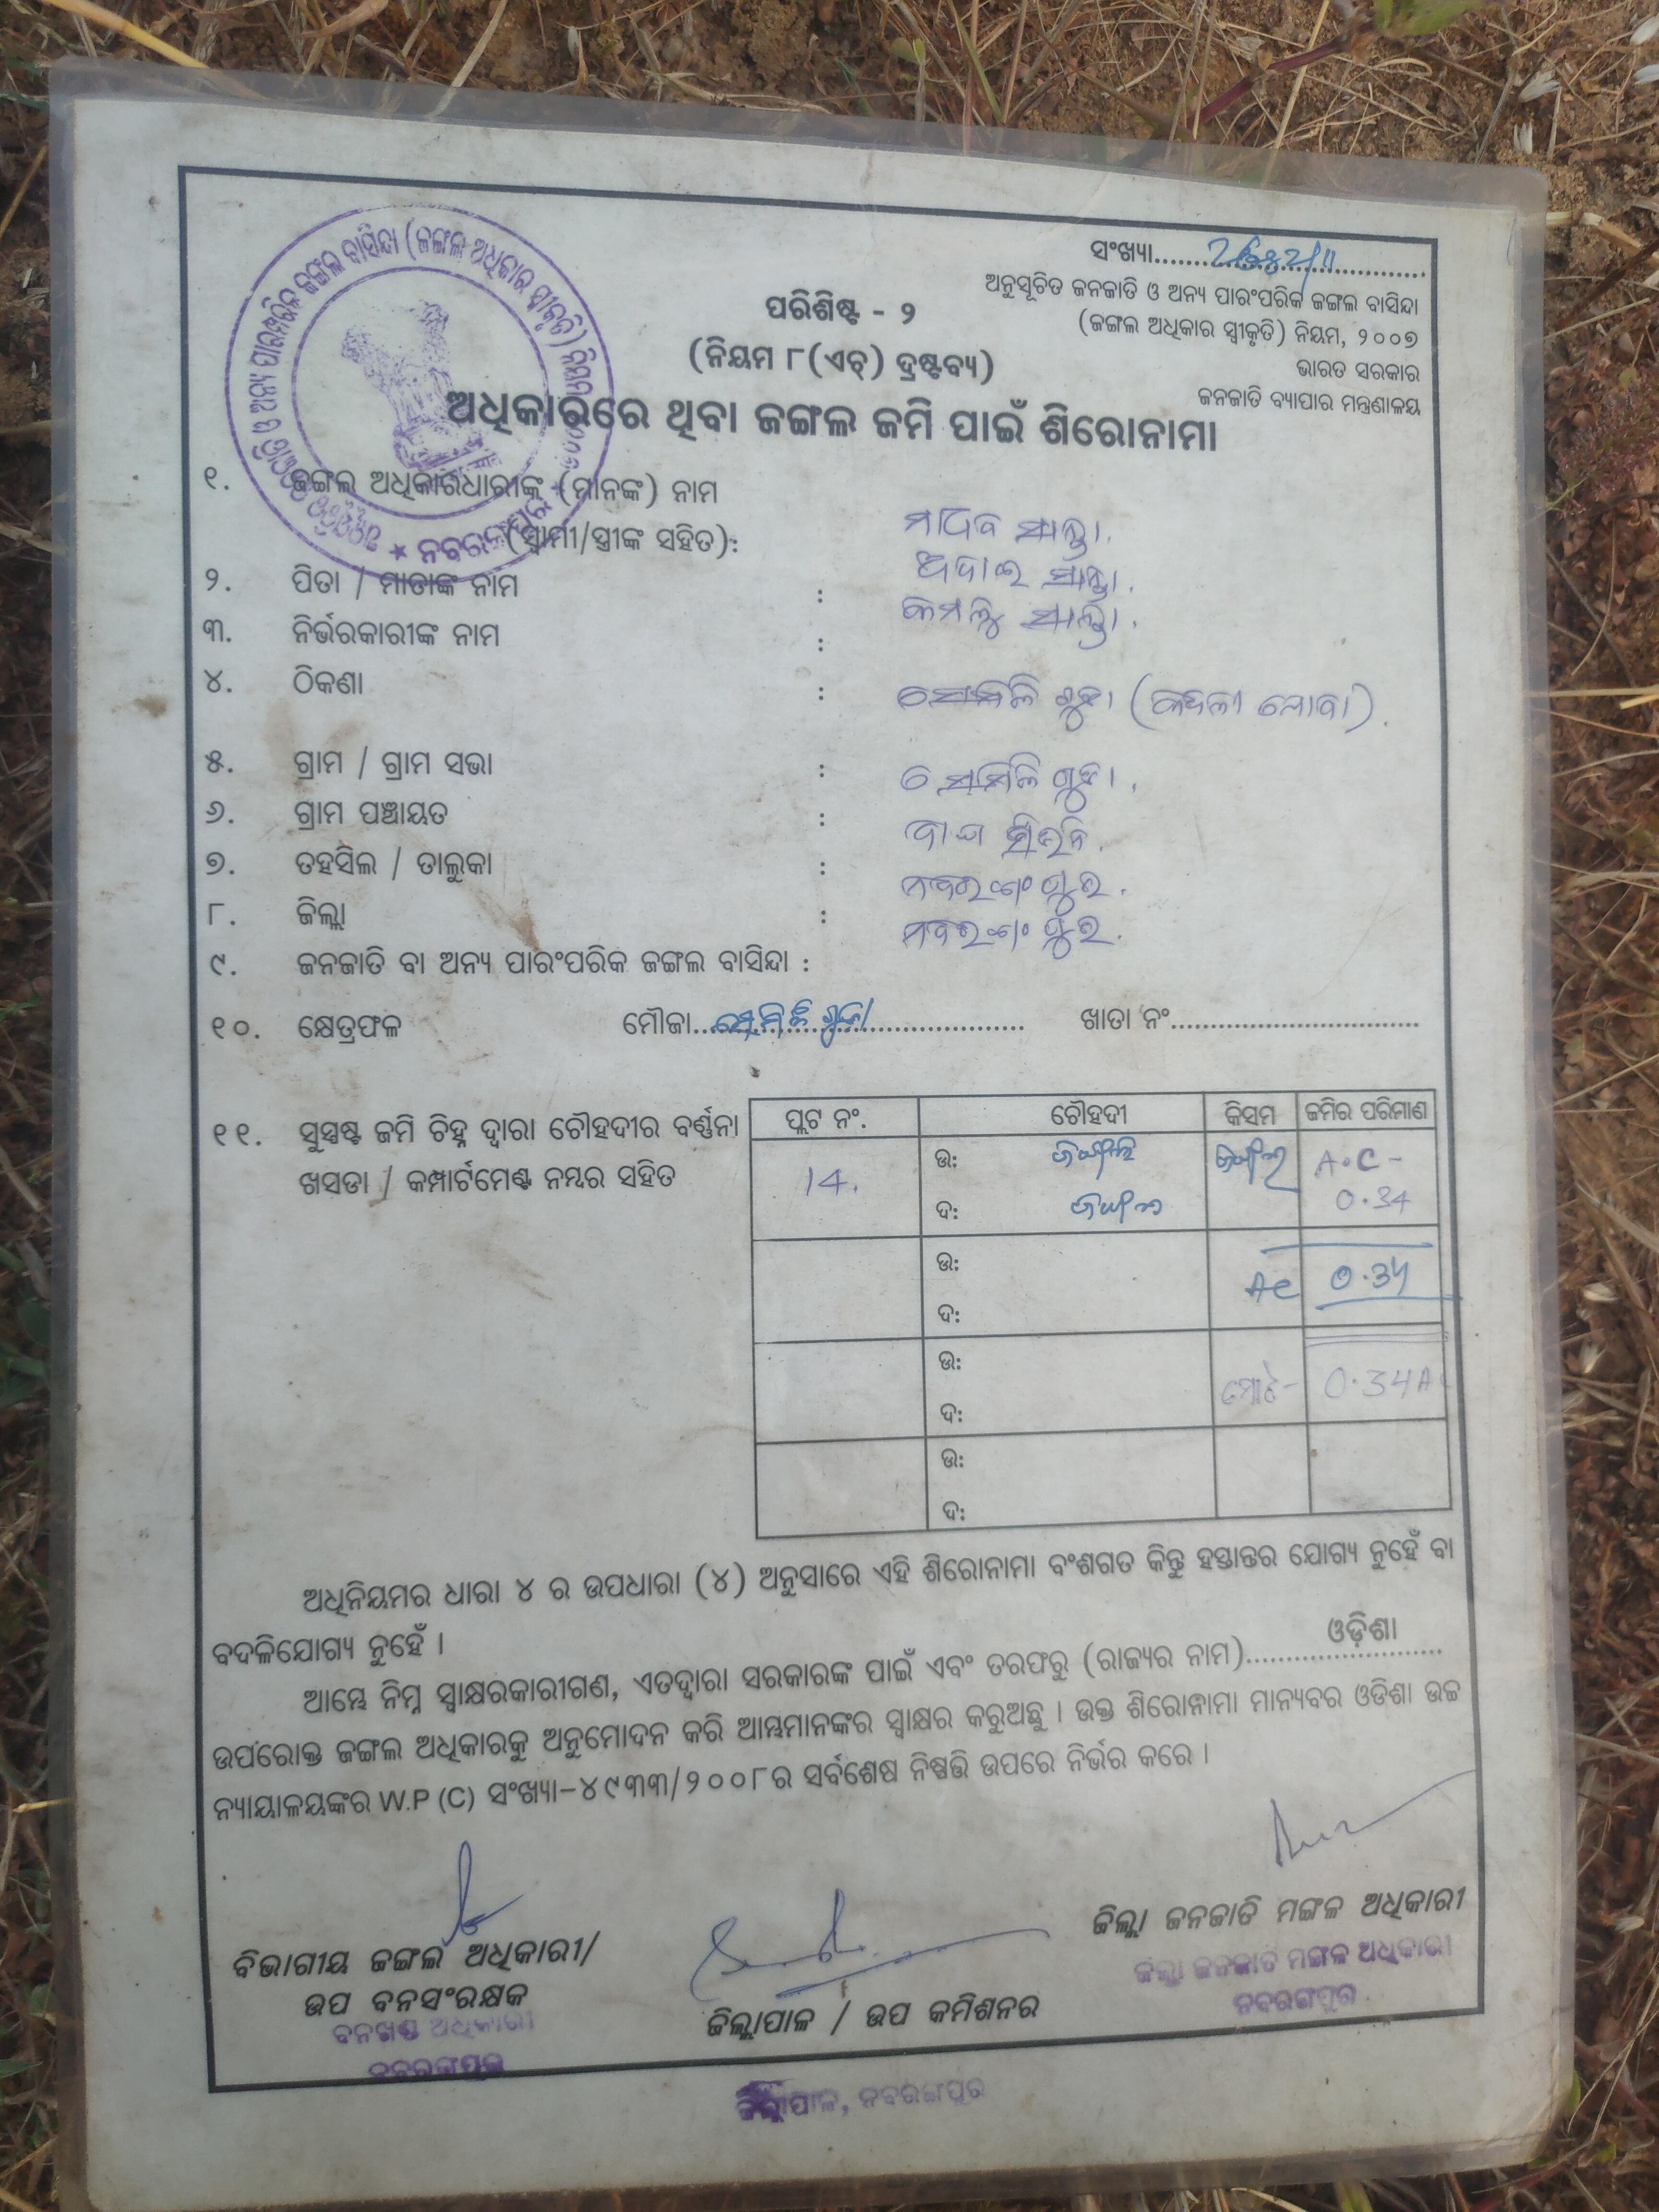 ସଂଖ୍ୟା
ଅନୁସୂଚିତ ଜନଜାତି ଓ ଅନ୍ୟ ପାରଂପରିକ ଜଙ୍ଗଲ ବାସିନ୍ଦା
(ଜଙ୍ଗଲ ଅଧିକାର ସ୍ୱୀକୃତି) ନିୟମ, ୨୦୦୭
ଭାରତ ସରକାର
ଜନଜାତି ବ୍ୟାପାର ମନ୍ତ୍ରଣାଳୟ
ପରିଶିଷ୍ଟ - ୨
(ନିୟମ ୮(ଏଚ୍) ଦ୍ରଷ୍ଟବ୍ୟ)
ଅଧିକାରରେ ଥିବା ଜଙ୍ଗଲ ଜମି ପାଇଁ ଶିରୋନାମା
୧. ଜଙ୍ଗଲ ଅଧିକାରଧାରୀଙ୍କ (ମାନଙ୍କ) ନାମ
(ସ୍ୱାମୀ/ସ୍ତ୍ରୀଙ୍କ ସହିତ): ମାଧବ ସାନ୍ତା
୨. ପିତା / ମାତାଙ୍କ ନାମ : ସାନ୍ତା
୩. ନିର୍ଭରକାରୀଙ୍କ ନାମ : ସାନ୍ତା
୪. ଠିକଣା :
୫. ଗ୍ରାମ / ଗ୍ରାମ ସଭା :
୬. ଗ୍ରାମ ପଞ୍ଚାୟତ :
୭. ତହସିଲ / ତାଲୁକା : ନବରଂଗପୁର
୮. ଜିଲ୍ଲା : ନବରଂଗପୁର
୯. ଜନଜାତି ବା ଅନ୍ୟ ପାରଂପରିକ ଜଙ୍ଗଲ ବାସିନ୍ଦା :
୧୦. କ୍ଷେତ୍ରଫଳ ମୌଜା ଖାତା ନଂ
୧୧. ସୁସ୍ପଷ୍ଟ ଜମି ଚିହ୍ନ ଦ୍ୱାରା ଚୌହଦୀର ବର୍ଣ୍ଣନା
ଖସଡା / କମ୍ପାର୍ଟମେଣ୍ଟ ନମ୍ବର ସହିତ
ପ୍ଲଟ ନଂ. ଚୌହଦୀ କିସମ ଜମିର ପରିମାଣ
14. ଉ: ଜଙ୍ଗଲ ଜଙ୍ଗଲ A.C -
ଦ: ଜଙ୍ଗଲ 0.34
ଉ: Ac 0.34
ଦ:
ଉ: ମୋଟ- 0.34 A
ଦ:
ଉ:
ଦ:
ଅଧିନିୟମର ଧାରା ୪ ର ଉପଧାରା (୪) ଅନୁସାରେ ଏହି ଶିରୋନାମା ବଂଶଗତ କିନ୍ତୁ ହସ୍ତାନ୍ତର ଯୋଗ୍ୟ ନୁହେଁ ବା
ବଦଳିଯୋଗ୍ୟ ନୁହେଁ ।
ଆମ୍ଭେ ନିମ୍ନ ସ୍ୱାକ୍ଷରକାରୀଗଣ, ଏତଦ୍ଦ୍ୱାରା ସରକାରଙ୍କ ପାଇଁ ଏବଂ ତରଫରୁ (ରାଜ୍ୟର ନାମ) ଓଡ଼ିଶା
ଉପରୋକ୍ତ ଜଙ୍ଗଲ ଅଧିକାରକୁ ଅନୁମୋଦନ କରି ଆମ୍ଭମାନଙ୍କର ସ୍ୱାକ୍ଷର କରୁଅଛୁ । ଉକ୍ତ ଶିରୋନାମା ମାନ୍ୟବର ଓଡିଶା ଉଚ୍ଚ
ନ୍ୟାୟାଳୟଙ୍କର W.P (C) ସଂଖ୍ୟା-୪୯୩୩/୨୦୦୮ର ସର୍ବଶେଷ ନିଷ୍ପତ୍ତି ଉପରେ ନିର୍ଭର କରେ ।
ବିଭାଗୀୟ ଜଙ୍ଗଲ ଅଧିକାରୀ/
ଉପ ବନସଂରକ୍ଷକ
ବନଖଣ୍ଡ ଅଧିକାରୀ
ନବରଙ୍ଗପୁର
ଜିଲ୍ଲାପାଳ / ଉପ କମିଶନର
ଜିଲ୍ଲାପାଳ, ନବରଙ୍ଗପୁର
ଜିଲ୍ଲା ଜନଜାତି ମଙ୍ଗଳ ଅଧିକାରୀ
ଜିଲ୍ଲା ଜନଜାତି ମଙ୍ଗଳ ଅଧିକାରୀ
ନବରଙ୍ଗପୁର